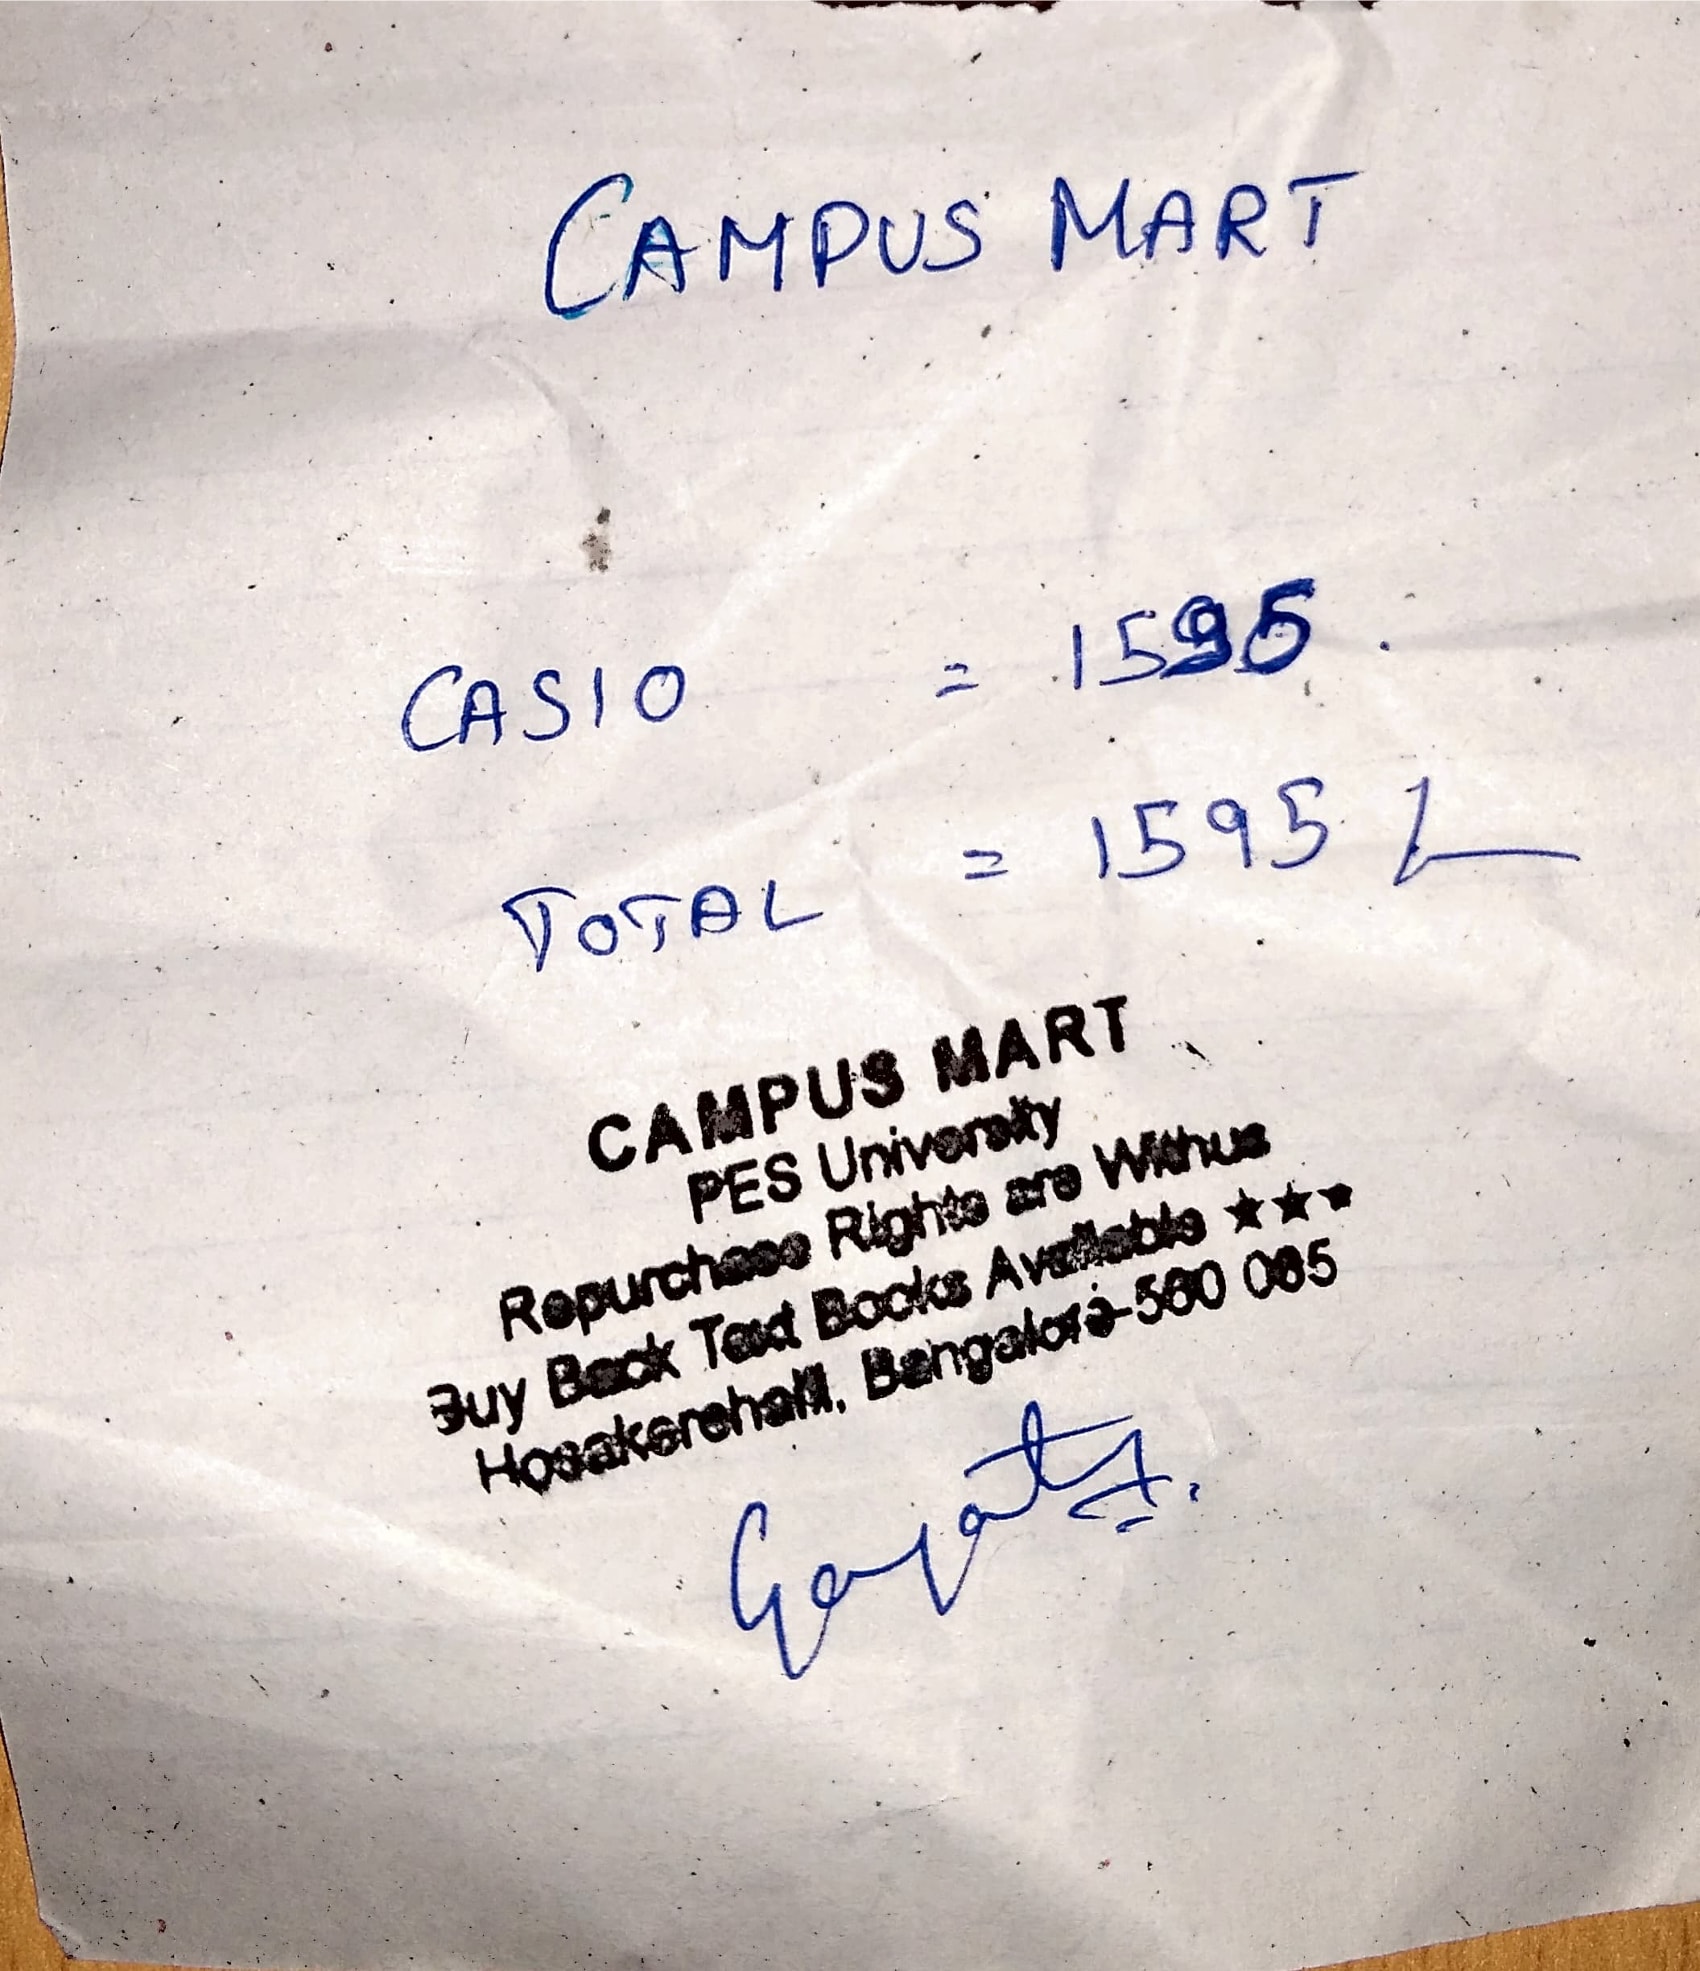 CAMPUS MART
CASIO = 1595.
TOTAL = 1595 /-
CAMPUS MART
PES University
Repurchase Rights are Withus
Buy Back Text Books Available ★★★
Hosakerehalli, Bangalore-560 085